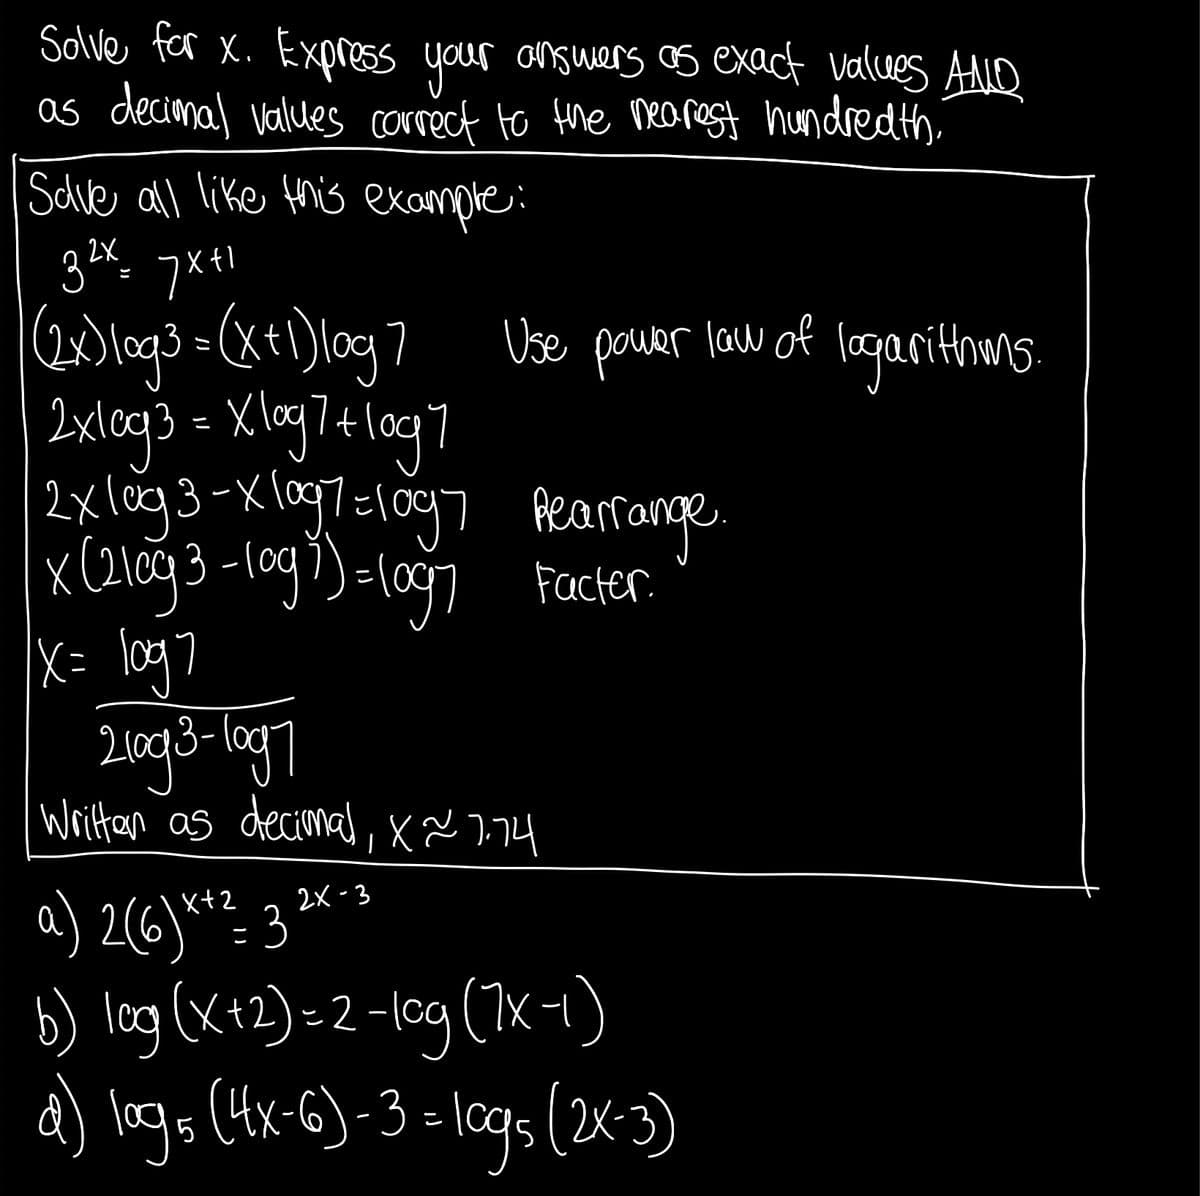 Solve for x. Express your answers as exact values AND
as decimal values correct to the nearest hundredth.
Solve all like this example:
3^2x = 7^x+1
(2x)log3 = (x+1)log7 Use power law of logarithms.
2xlog3 = xlog7+log7
2xlog3-xlog7=log7 Rearrange.
x(2log3-log7)=log7 Factor.
x= log7
2log3-log7
Written as decimal, x≈7.74
a) 2(6)^x+2 = 3^2x-3
b) log(x+2)=2-log(7x-1)
d) log₅(4x-6)-3=log₅(2x-3)